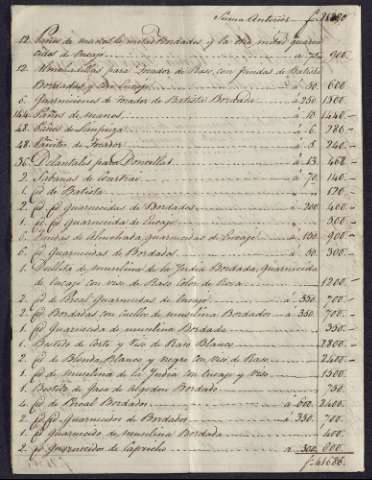 Suma Anterior f.
12. Paños de manos la mitad Bordados y la otra mitad guarnecidos de Encaje a 75 900.
12. Almohadillas para Tocador de Raso, con fundas de Batista Bordadas y con Encaje a 50 600
6. Guarniciones de tocador de Batista Bordada a 250 1500
144. Paños de manos a 10 1440
48. Paños de Limpieza a 6 288
48. Pañitos de Tocador a 5 240
36. Delantales para Doncellas a 13 468
2. Sabanas de Courtrai a 70 140
1. id. de Batista
2. id. id. Guarnecidas de Bordados a 200 400
1. id. id. Guarnecida de Encaje 300
6. Fundas de Almohada, guarnecidas de Encaje a 150 900
6. id. Guarnecidas de Bordados a 50 300
1. de muselina de la India Bordada, Guarnecida de encaje con viso de Raso Color de Rosa 1200
2. id. de Guarnecidas de Encaje a 350 700
2. id. Bordadas con Cuello de muselina Bordados a 350 700
1. id. Guarnecida de muselina Bordada 350
1. Vestido de Corte y Viso de Raso Blanco 2800
2. id. de Blonda, Blanco y negro con Viso de Raso 2400
1. id. de Muselina de la India con Encaje y Viso 1500
1. Vestido de Gasa de Algodon Bordado 750
4. id. de Bordados a 600 2400
2. id. id. Guarnecidos de Bordados a 350 700
1. id. Guarnecido de muselina Bordada 400
2. id. Guarnecidos de Capricho a 300 600
f. 41686